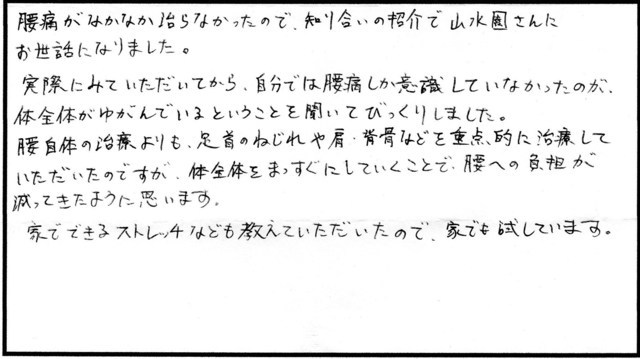 腰痛がなかなか治らなかったので、知り合いの紹介で山水園さんに
お世話になりました。
実際にみていただいてから、自分では腰痛しか意識していなかったのが、
体全体がゆがんでいるということを聞いてびっくりしました。
腰自体の治療よりも、足首のねじれや肩・背骨などを重点的に治療して
いただいたのですが、体全体をまっすぐにしていくことで、腰への負担が
減ってきたように思います。
家でできるストレッチなども教えていただいたので、家でも試しています。